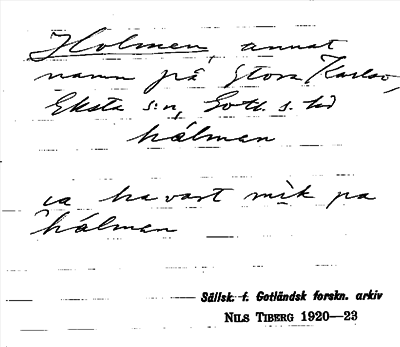 Holmen, annat
namn på Stora Karlsö,
Eksta s:n, Gotl. s. hd
hålman
ja ha vart mik pa
hålman
Sällsk. f. Gotländsk forskn. arkiv
NILS TIBERG 1920—23